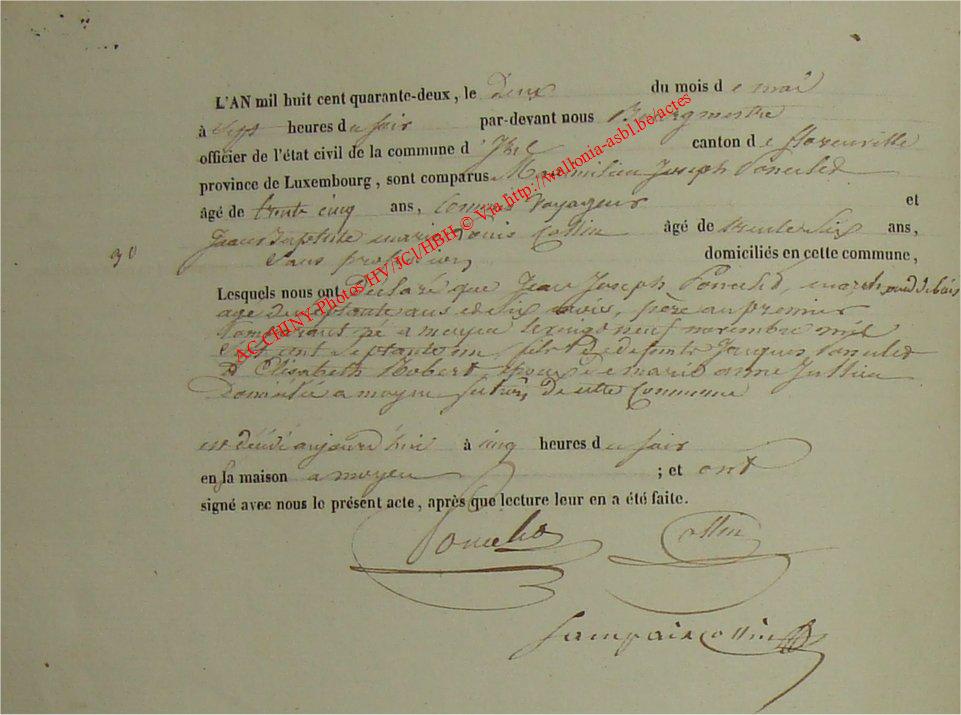 L'AN mil huit cent quarante-deux, le deux du mois d e mai
à sept heures d u soir par-devant nous Bourgmestre
officier de l'état civil de la commune d' Izel canton d e florenville
province de Luxembourg, sont comparus Maximilien Joseph Poncelet
âgé de trente cinq ans, commis voyageur et
Jean Baptiste marie Louis Collin âgé de trente six ans,
30 Sans profession domiciliés en cette commune,
Lesquels nous ont déclaré que Jean Joseph Poncelet marchand de bois
agé de septante ans et six mois, père au premier
Comparant né a moyen le vingt neuf novembre mil
sept cent septante un, fils de defunts Jacques Poncelet
& Elisabeth Robert époux de marie anne
Domicilié a moyen section de cette Commune
est décédé aujourd'hui à cinq heures d u soir
en sa maison a moyen ; et ont
signé avec nous le présent acte, après que lecture leur en a été faite.
Poncelet Collin
collin
AC CHINY-Photos HV/JCl/HBH, © Via http://wallonia-asbl.be/actes